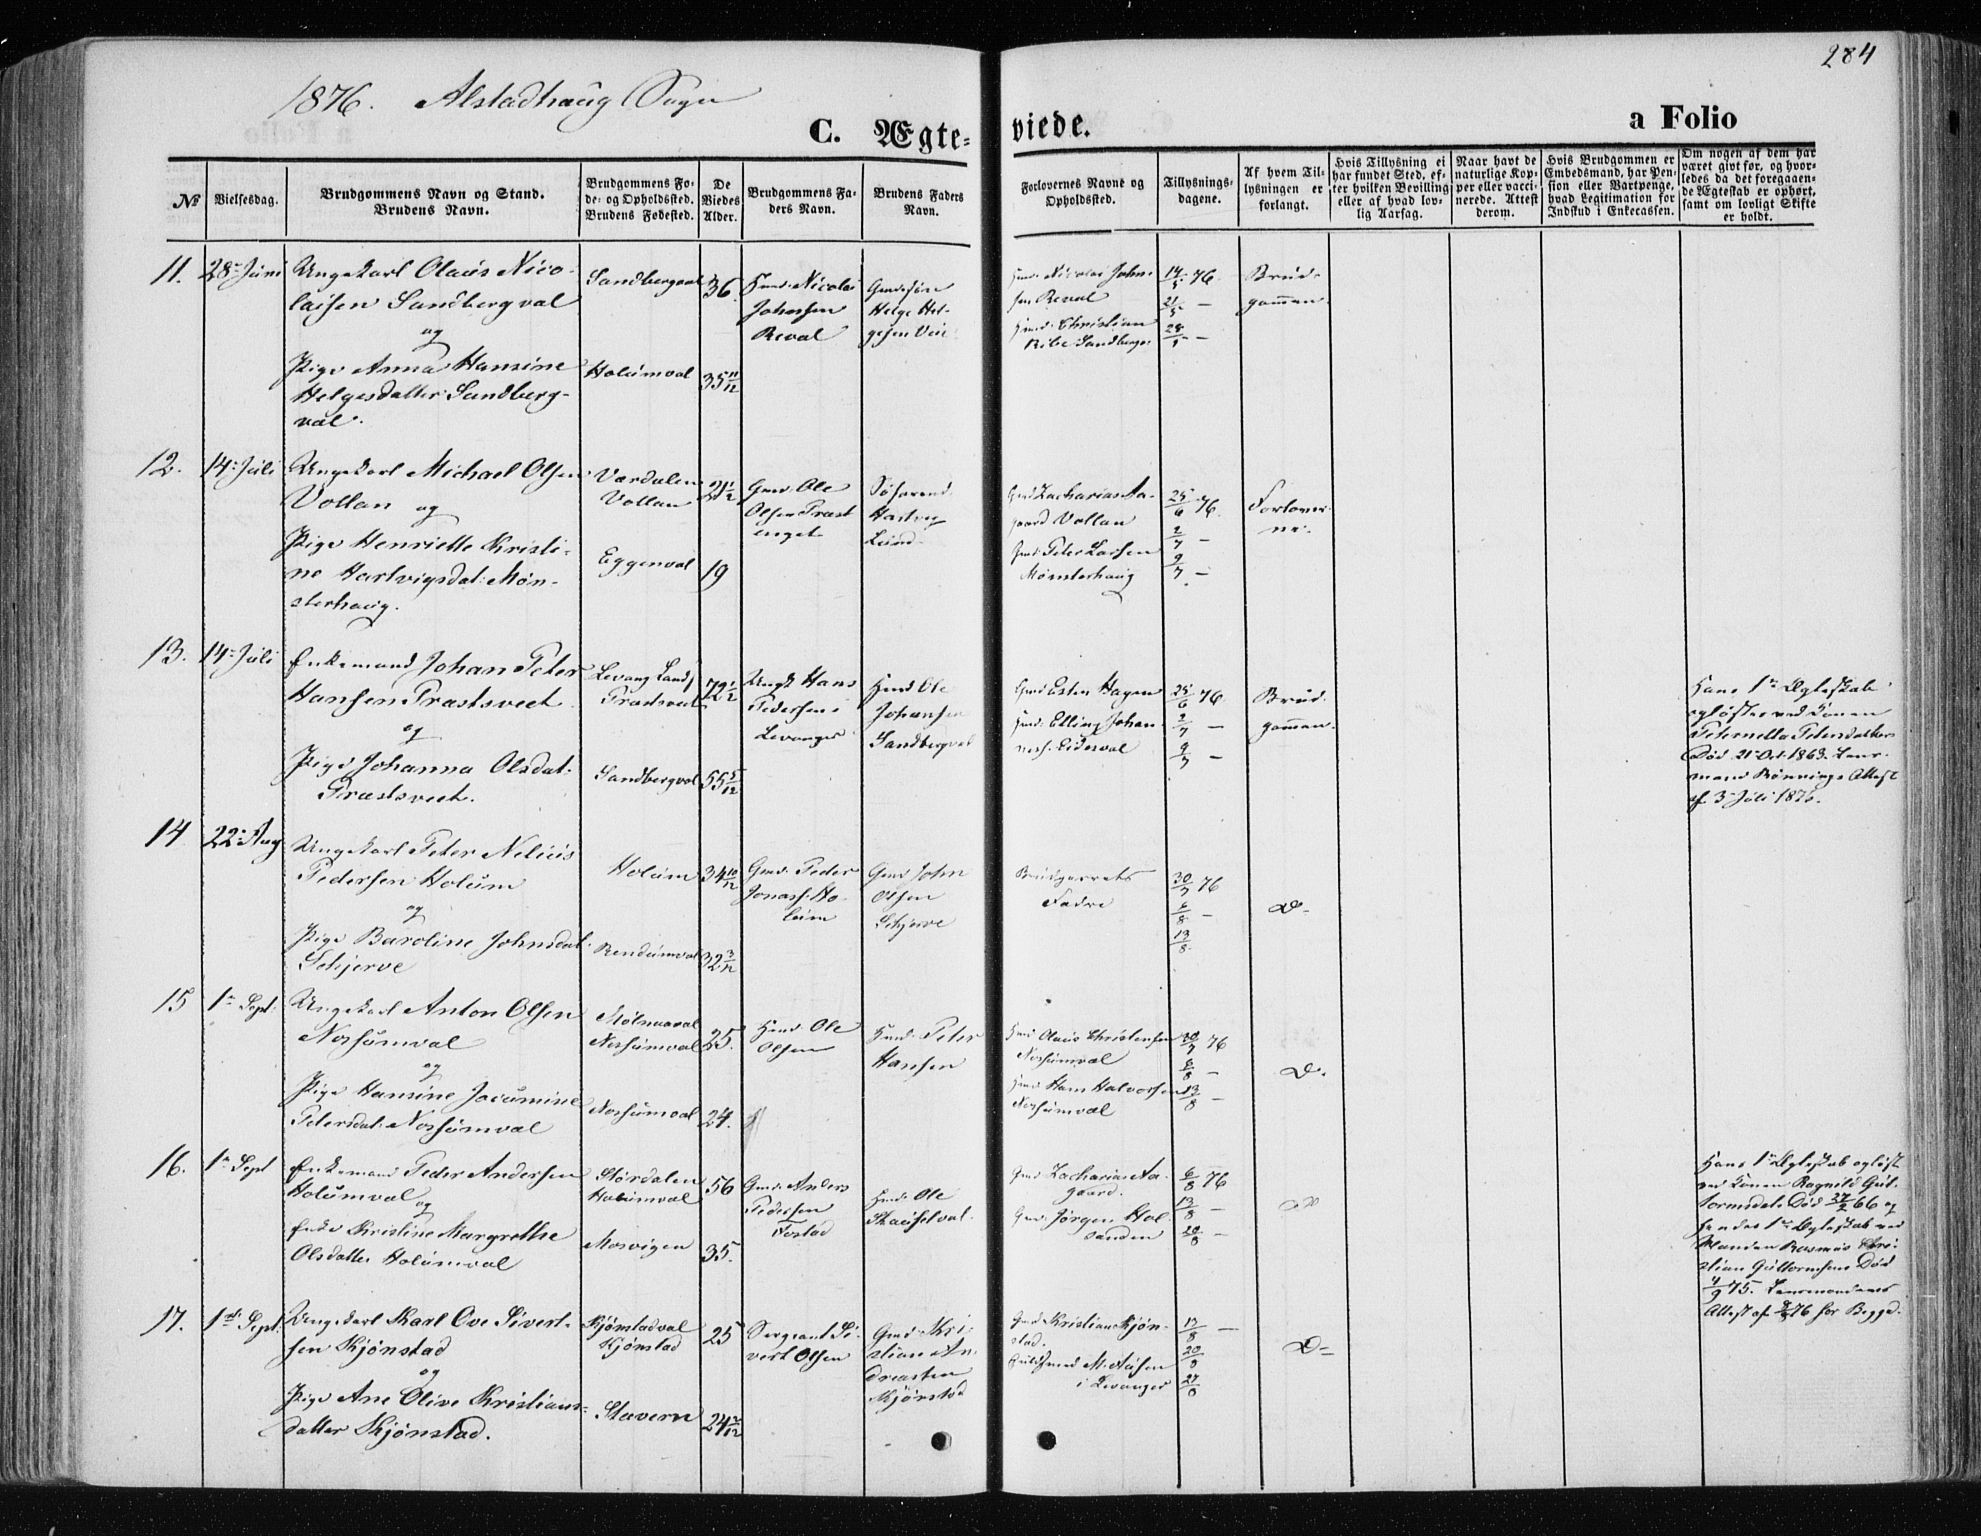 284
1876. Alstadhaug Sogn
C. Ægteviede. a Folio
№
Vielsesdag.
Brudgommens Navn og Stand.
Brudens Navn.
Brudgommens Fø-
de- og Opholdssted.
Brudens Fødested.
De
Viedes
Alder.
Brudgommens Fa-
ders Navn.
Brudens Faders
Navn.
Forlovernes Navne og
Opholdssted.
Tillysnings-
dagene.
Af hvem Til-
lysningen er
forlangt.
Hvis Tillysning ei
har fundet Sted, ef-
ter hvilken Bevilling
eller af hvad lov-
lig Aarsag.
Naar havt de
naturlige Kop-
per eller vacci-
nerede. Attest
derom.
Hvis Brudgommen er
Embedsmand, har Pen-
sion eller Vartpenge,
hvad Legitimation for
Indskud i Enkecassen.
Om nogen af dem har
været givt før, og hvor-
ledes da det foregaaen-
de Ægteskab er ophørt,
samt om lovligt Skifte
er holdt.
11.
28de Juni
Ungekarl Olaus Nico-
laisen Sandbergval
og
Pige Anna Hansine
Helgesdatter Sandberg-
val.
Sandbergval
Holumval
36
35 11/12
Husm. Nicolai
Johnsen
Reval
Helge Hel-
gesen
Husm. Nicolai John-
sen Reval
Husm. Christian
14/5 76.
21/5 —
28/5 —
Brud-
gommen.
12.
14de Juli
Ungekarl Michael Olsen
Vollan og
Pige Henriette Kristi-
ne Hartvigsdat: Møn-
sterhaug.
Værdalen
Vollan
Eggenval
19
Gmd. Ole
Olsen Præst
enget
Søfarend.
Hartvig
Lund.
Gmd Zacharias Aa-
gaard Vollan
Gmd. Peter Larsen
Mønsterhaug
25/6 76.
2/7 —
9/7 —
Forlover-
ne.
13.
14de Juli
Enkemand Johan Peter
Hansen Præstsveet
og
Pige Johanna Olsdat:
Præstsveet.
Levang. Lands.
Præstsveet
Sandbergval
72 1/2
55 5/12
Ungk Hans
Pedersen i
Levanger
Husmd Ole
Johansen
Sandbergval
Gmd Esten Hagen
Husm. Elling Johan-
ness. Eidesval
25/6 76
2/7 —
9/7 —
Brud-
gommen.
Hans 1ste Ægteskab
opløstes ved Konen
Peternella Petersdatter
Død 21 Oct 1863. Lens-
mand Rønnings Attest
af 3 Juli 1876.
14
22de Aug
Ungekarl Peter Nelius
Pedersen Holum
og
Pige Baroline Johnsdat:
Schjerve
Holum
Rendumval
34 10/12
32 3/12
Gmd. Peder
Jonass. Ho-
lum
Gmd John
Olsen
Schjerve
Brudparrets
Fædre
30/7 76
6/8 —
13/8
D-
15
1ste Sept.
Ungekarl Anton Olsen
Nossumval
og
Pige Hansine Jacumine
Petersdat: Nossumval
Mølnaaval
Nossumval
Nossumval
25.
24.
Husmd. Ole
Olsen
Husmd. Peter
Hansen
Husmd Olaus Christensen
Nossumval
Husmd Hans Halvorsen
Nossumval
30/7 76
6/8 —
13/8 —
D.
16.
1ste Sept
Enkemand Peder Andersen
Holumval
og
Enke Kristine Margrethe
Olsdatter Holumval
Størdalen
Holumval
Mosvigen
56
35.
Gmd. Anders
Pedersen
Fostad
Husmd. Ole
Gmd Zacharias Aa-
gaard.
Gmd. Jørgen Hol-
sanden
6/8 76
13/8 —
20/8 —
Hans 1ste Ægteskab opløst
ved Konen Ragnild Gut-
tormsdat: Død 27/2 66 og
hendes 1ste Ægteskab ved
Manden Rasmus Chri-
stian Guttormsens Død
4/9 75. Lensmandens
Attest af 76 for Begge.
17.
1ste Sept.
Ungekarl Karl Ove Sivert-
sen Skjønstad
og
Pige Ane Olive Kristians-
datter Skjønstad.
Skjønstadval
Skjønstad
Stavern
25
24 2/12
Sergeant Si-
vert Olsen
Gmd. Kri-
stian An-
dreassen
Skjønstad
Gmd Kristian Skjøn-
stad.
Guldsmed M. Aasen
i Levanger
13/8 —
20/8
27/8
D-